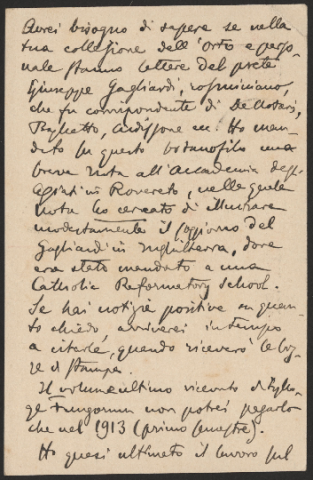 Avrei bisogno di sapere se nella
tua collezione dell'Orto e perso-
nale stanno lettere del prete
Giuseppe Gagliardi, rosminiano,
che fu corrispondente di DeNotaris,
Baglietto, Ardissone ecc. Ho man-
dato su questo botanofilo una
breve nota all'Accademia degli
Agiati in Rovereto, nella quale
nota ho cercato di illustrare
modestamente il soggiorno del
Gagliardi in Inghilterra, dove
era stato mandato a una
Catholic Reformatory School.
Se hai notizie positive su quan-
to chiedo arriverei in tempo
a citarle, quando riceverò le boz-
ze di stampa.
Il volume ultimo vicento di Syllo-
ge Fungorum non potrei pagarlo
che nel 1913 (primo semestre).
Ho quasi ultimato il lavoro sul